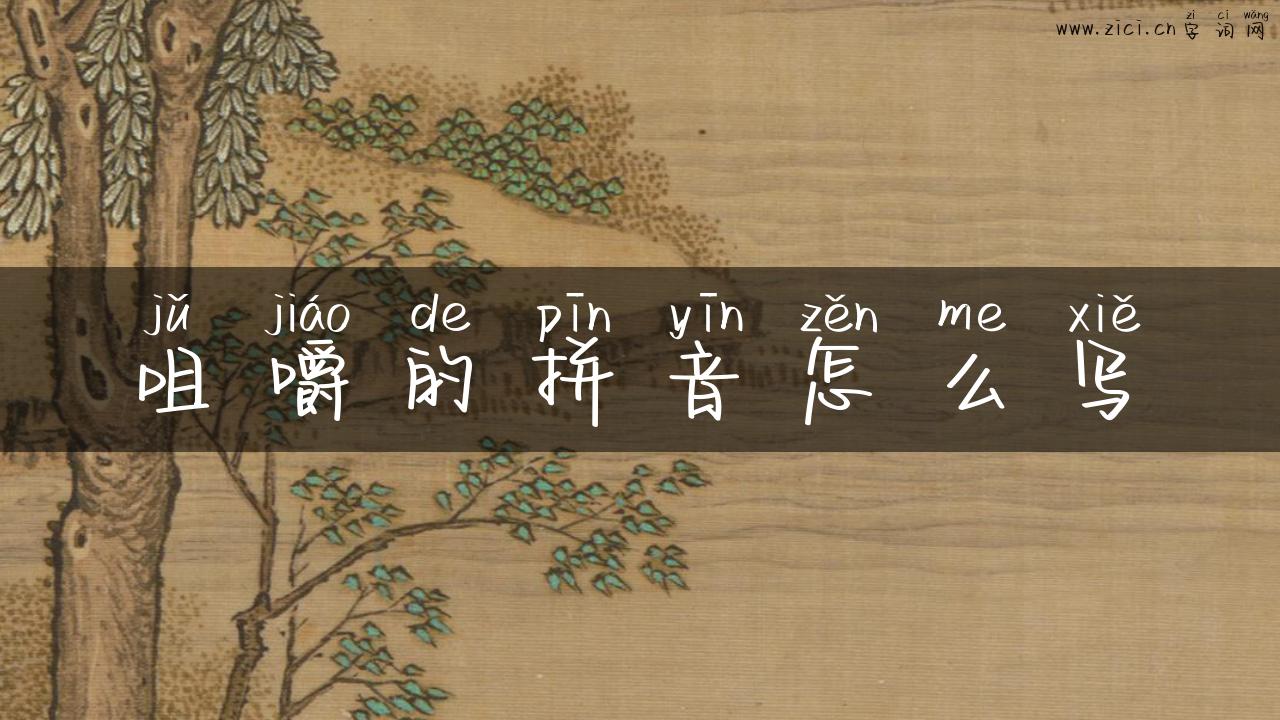 zì cí wǎng
www.zici.cn 字词网
jǔ jiáo de pīn yīn zěn me xiě
咀嚼的拼音怎么写